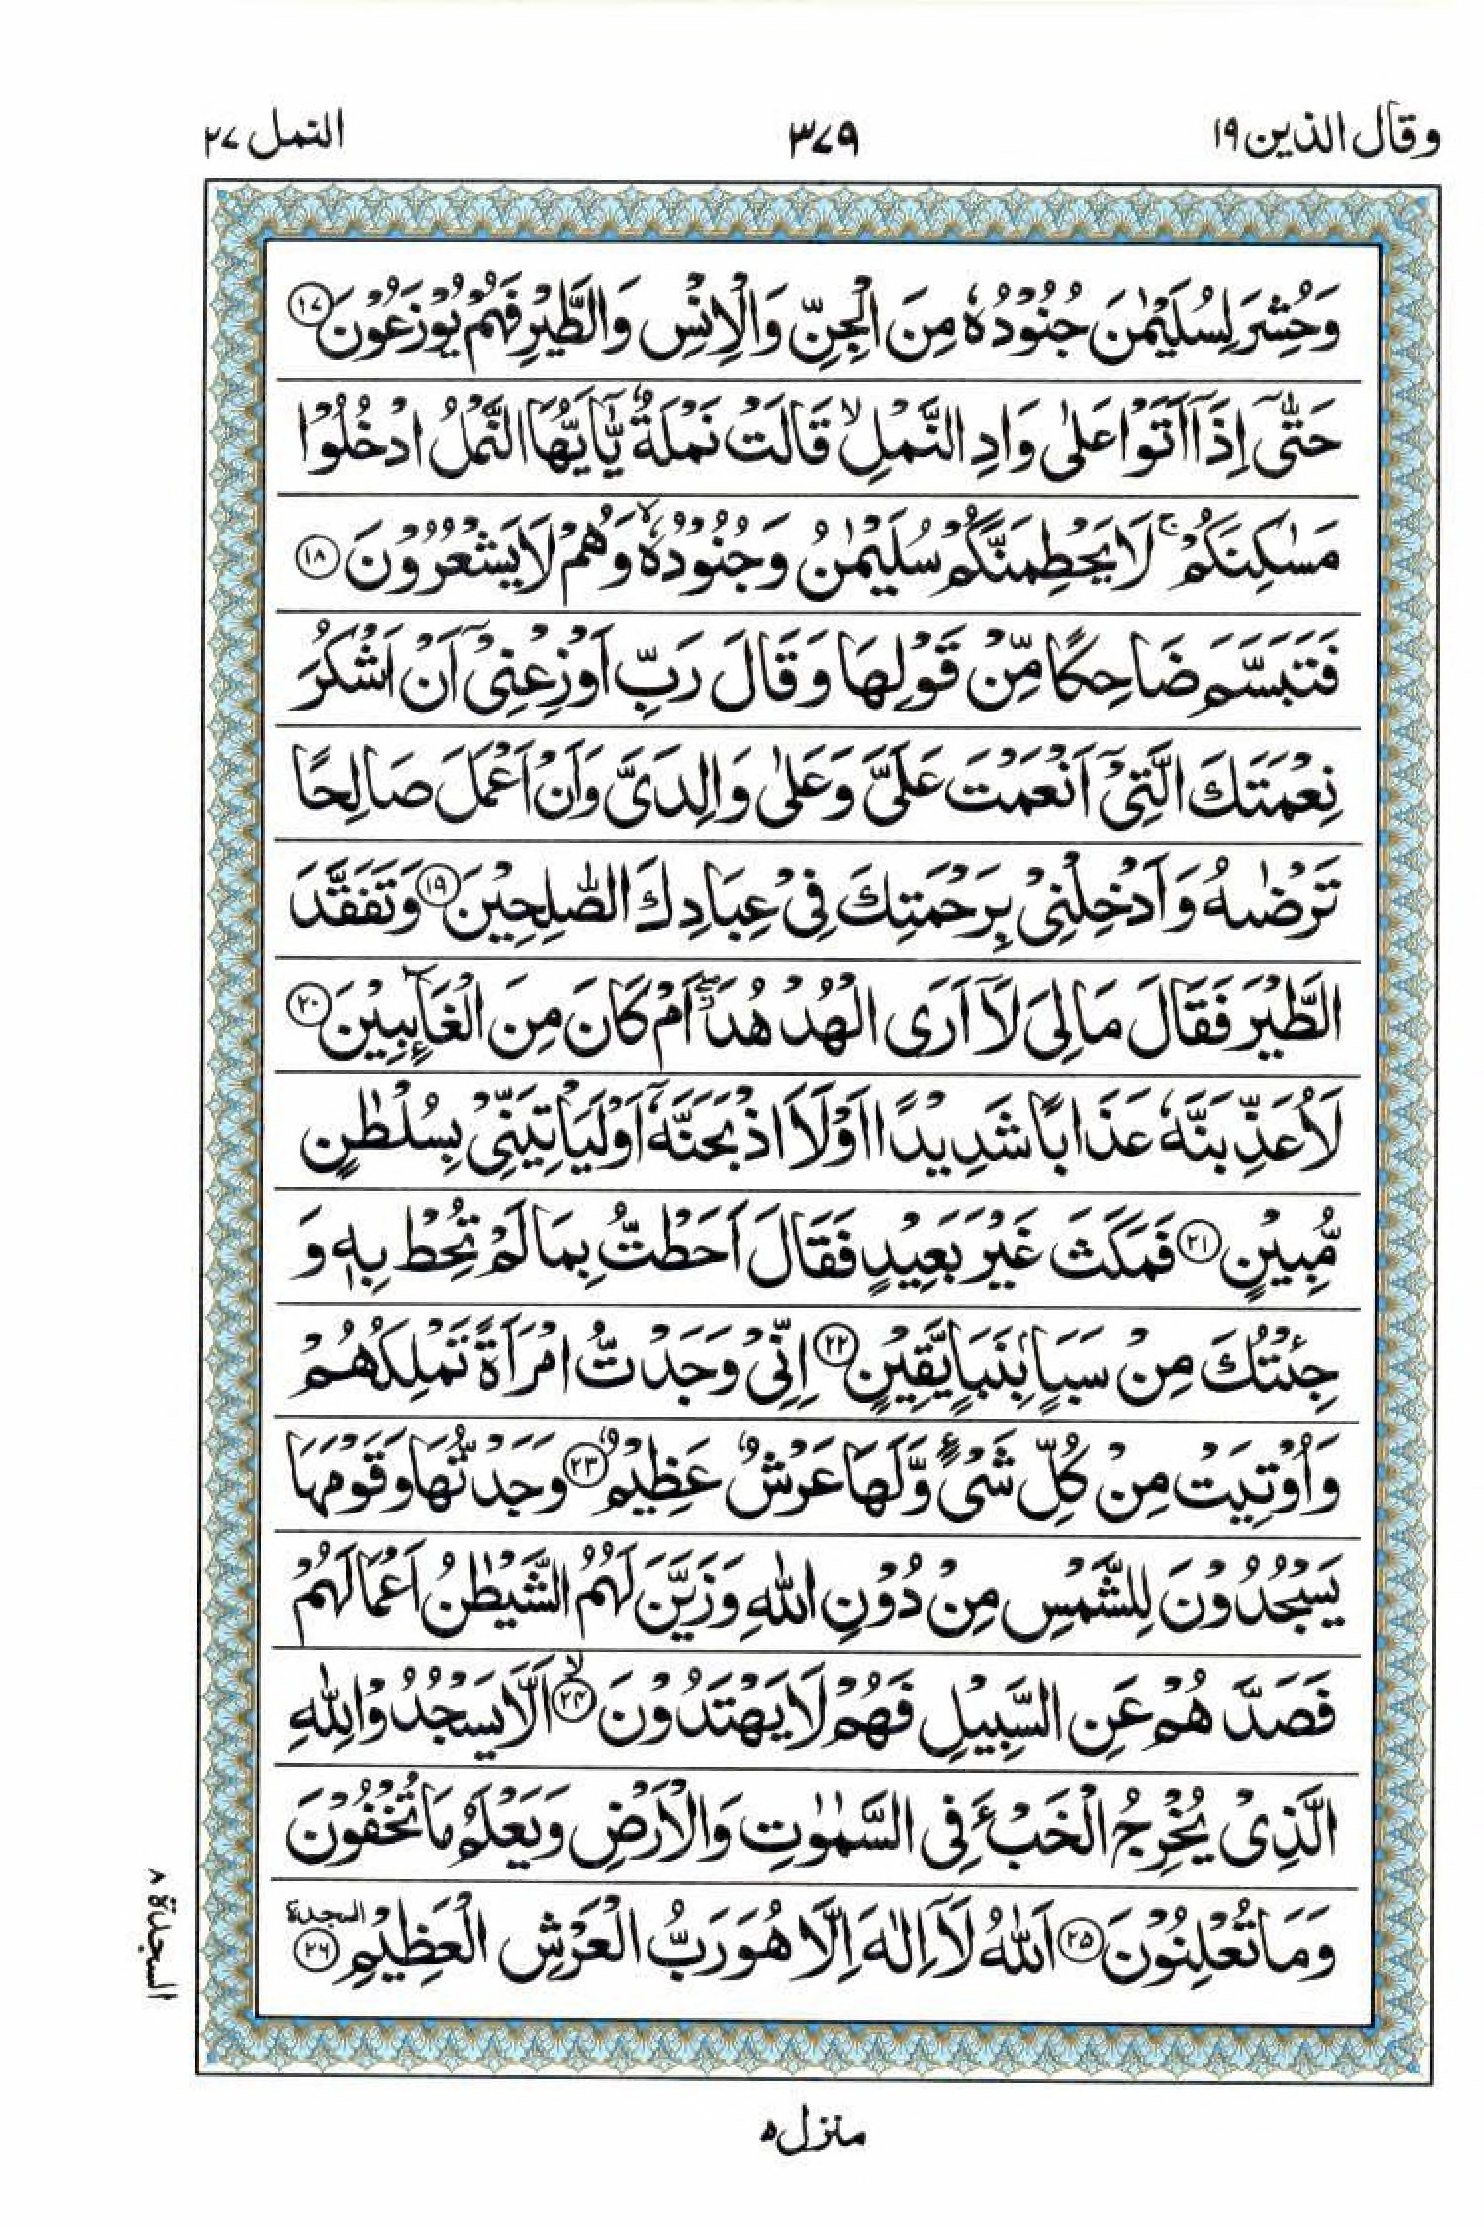 وقال الذين ١٩
٣٧٩
النمل ٢٧
وَحُشِرَ لِسُلَيْمٰنَ جُنُوْدُهٗ مِنَ الْجِنِّ وَالْاِنْسِ وَالطَّيْرِ فَهُمْ يُوْزَعُوْنَ ١٧
حَتّٰٓى اِذَآ اَتَوْا عَلٰى وَادِ النَّمْلِ ۙ قَالَتْ نَمْلَةٌ يّٰٓاَيُّهَا النَّمْلُ ادْخُلُوْا
مَسٰكِنَكُمْ ۚ لَا يَحْطِمَنَّكُمْ سُلَيْمٰنُ وَجُنُوْدُهٗ ۙ وَهُمْ لَا يَشْعُرُوْنَ ١٨
فَتَبَسَّمَ ضَاحِكًا مِّنْ قَوْلِهَا وَقَالَ رَبِّ اَوْزِعْنِيْٓ اَنْ اَشْكُرَ
نِعْمَتَكَ الَّتِيْٓ اَنْعَمْتَ عَلَيَّ وَعَلٰى وَالِدَيَّ وَاَنْ اَعْمَلَ صَالِحًا
تَرْضٰىهُ وَاَدْخِلْنِيْ بِرَحْمَتِكَ فِيْ عِبَادِكَ الصّٰلِحِيْنَ ١٩ وَتَفَقَّدَ
الطَّيْرَ فَقَالَ مَا لِيَ لَآ اَرَى الْهُدْهُدَ ۖ اَمْ كَانَ مِنَ الْغَآئِبِيْنَ ٢٠
لَاُعَذِّبَنَّهٗ عَذَابًا شَدِيْدًا اَوْ لَاَا۟ذْبَحَنَّهٗٓ اَوْ لَيَاْتِيَنِّيْ بِسُلْطٰنٍ
مُّبِيْنٍ ٢١ فَمَكَثَ غَيْرَ بَعِيْدٍ فَقَالَ اَحَطْتُّ بِمَا لَمْ تُحِطْ بِهٖ وَ
جِئْتُكَ مِنْ سَبَاٍ بِنَبَاٍ يَّقِيْنٍ ٢٢ اِنِّيْ وَجَدْتُّ امْرَاَةً تَمْلِكُهُمْ
وَاُوْتِيَتْ مِنْ كُلِّ شَيْءٍ وَّلَهَا عَرْشٌ عَظِيْمٌ ٢٣ وَجَدْتُّهَا وَقَوْمَهَا
يَسْجُدُوْنَ لِلشَّمْسِ مِنْ دُوْنِ اللّٰهِ وَزَيَّنَ لَهُمُ الشَّيْطٰنُ اَعْمَالَهُمْ
فَصَدَّهُمْ عَنِ السَّبِيْلِ فَهُمْ لَا يَهْتَدُوْنَ ۙ ٢٤ اَلَّا يَسْجُدُوْا لِلّٰهِ
الَّذِيْ يُخْرِجُ الْخَبْءَ فِي السَّمٰوٰتِ وَالْاَرْضِ وَيَعْلَمُ مَا تُخْفُوْنَ
وَمَا تُعْلِنُوْنَ ٢٥ اَللّٰهُ لَآ اِلٰهَ اِلَّا هُوَ رَبُّ الْعَرْشِ الْعَظِيْمِ السجدة ٢٦
السجدة ٨
منزل ٥